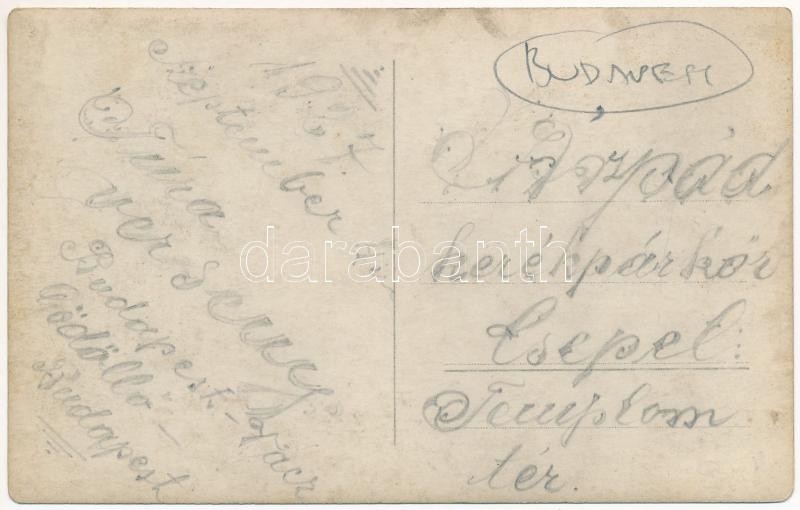 1927
September 4.
Túra
verseny
Budapest-Vácz
Gödöllő-
Budapest
BUDAPEST
Árpád
kerékpárkör
Csepel:
Templom
tér.
darabanth